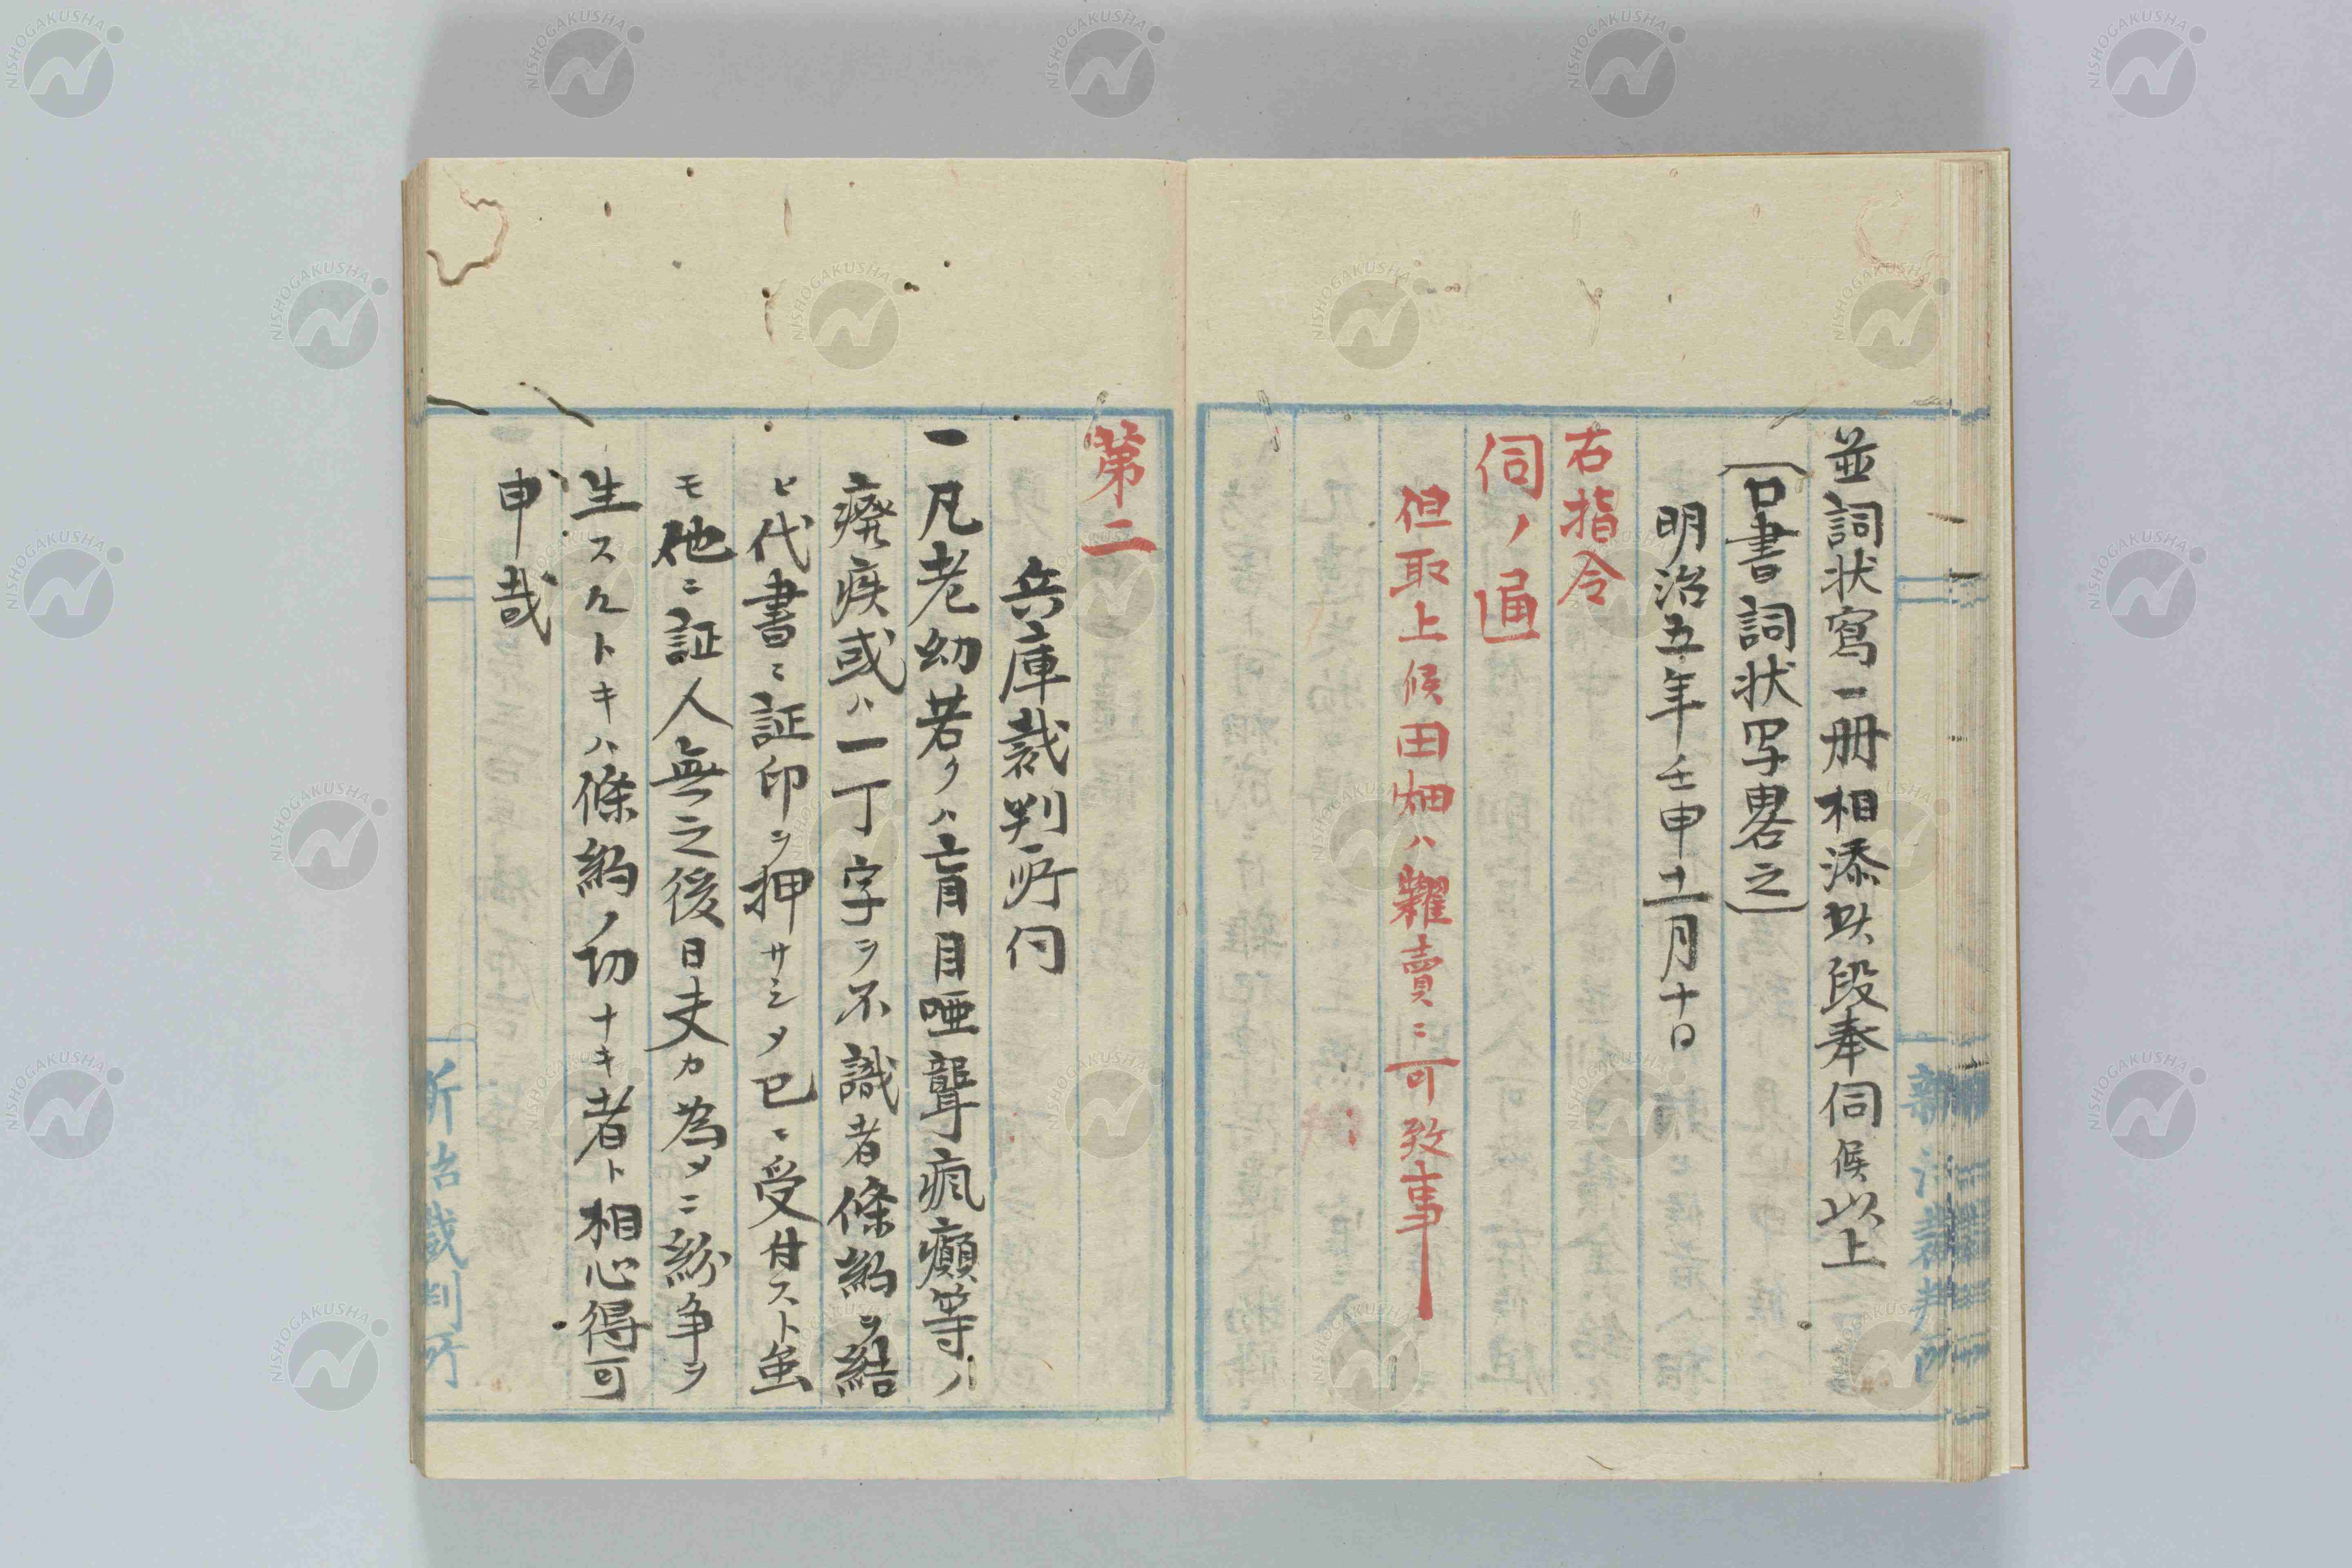 並詞状寫一冊相添此段奉伺候以上
(口書詞状写畧之)
明治五年壬申十一月十日
右指令
伺ノ通
但取上候田畑ハ糶賣ニ可致事
新治裁判所
第二
兵庫裁判所伺
一凡老幼若クハ盲目唖聾瘋癲等ノ
癈疾或ハ一丁字ヲ不識者條約ヲ結
ヒ代書ニ証印ヲ押サシメ已ニ受付スト虽
モ他ニ証人無之後日夫カ為メニ紛争ヲ
生スルトキハ條約ノ切ナキ者ト相心得可
申哉
新治裁判所
NISHOGAKUSHA